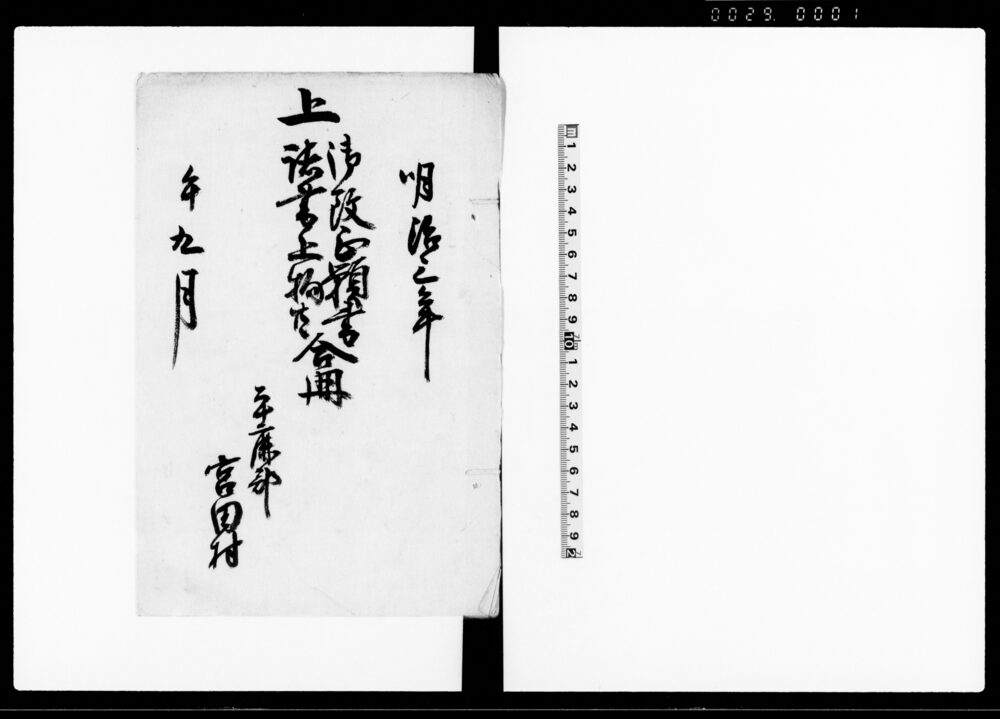 0029. 0001
明治三年
上
御改正願書
諸書上
合冊
平鹿郡
宮田村
午九月
m 1 2 3 4 5 6 7 8 9 10 1 2 3 4 5 6 7 8 9 2